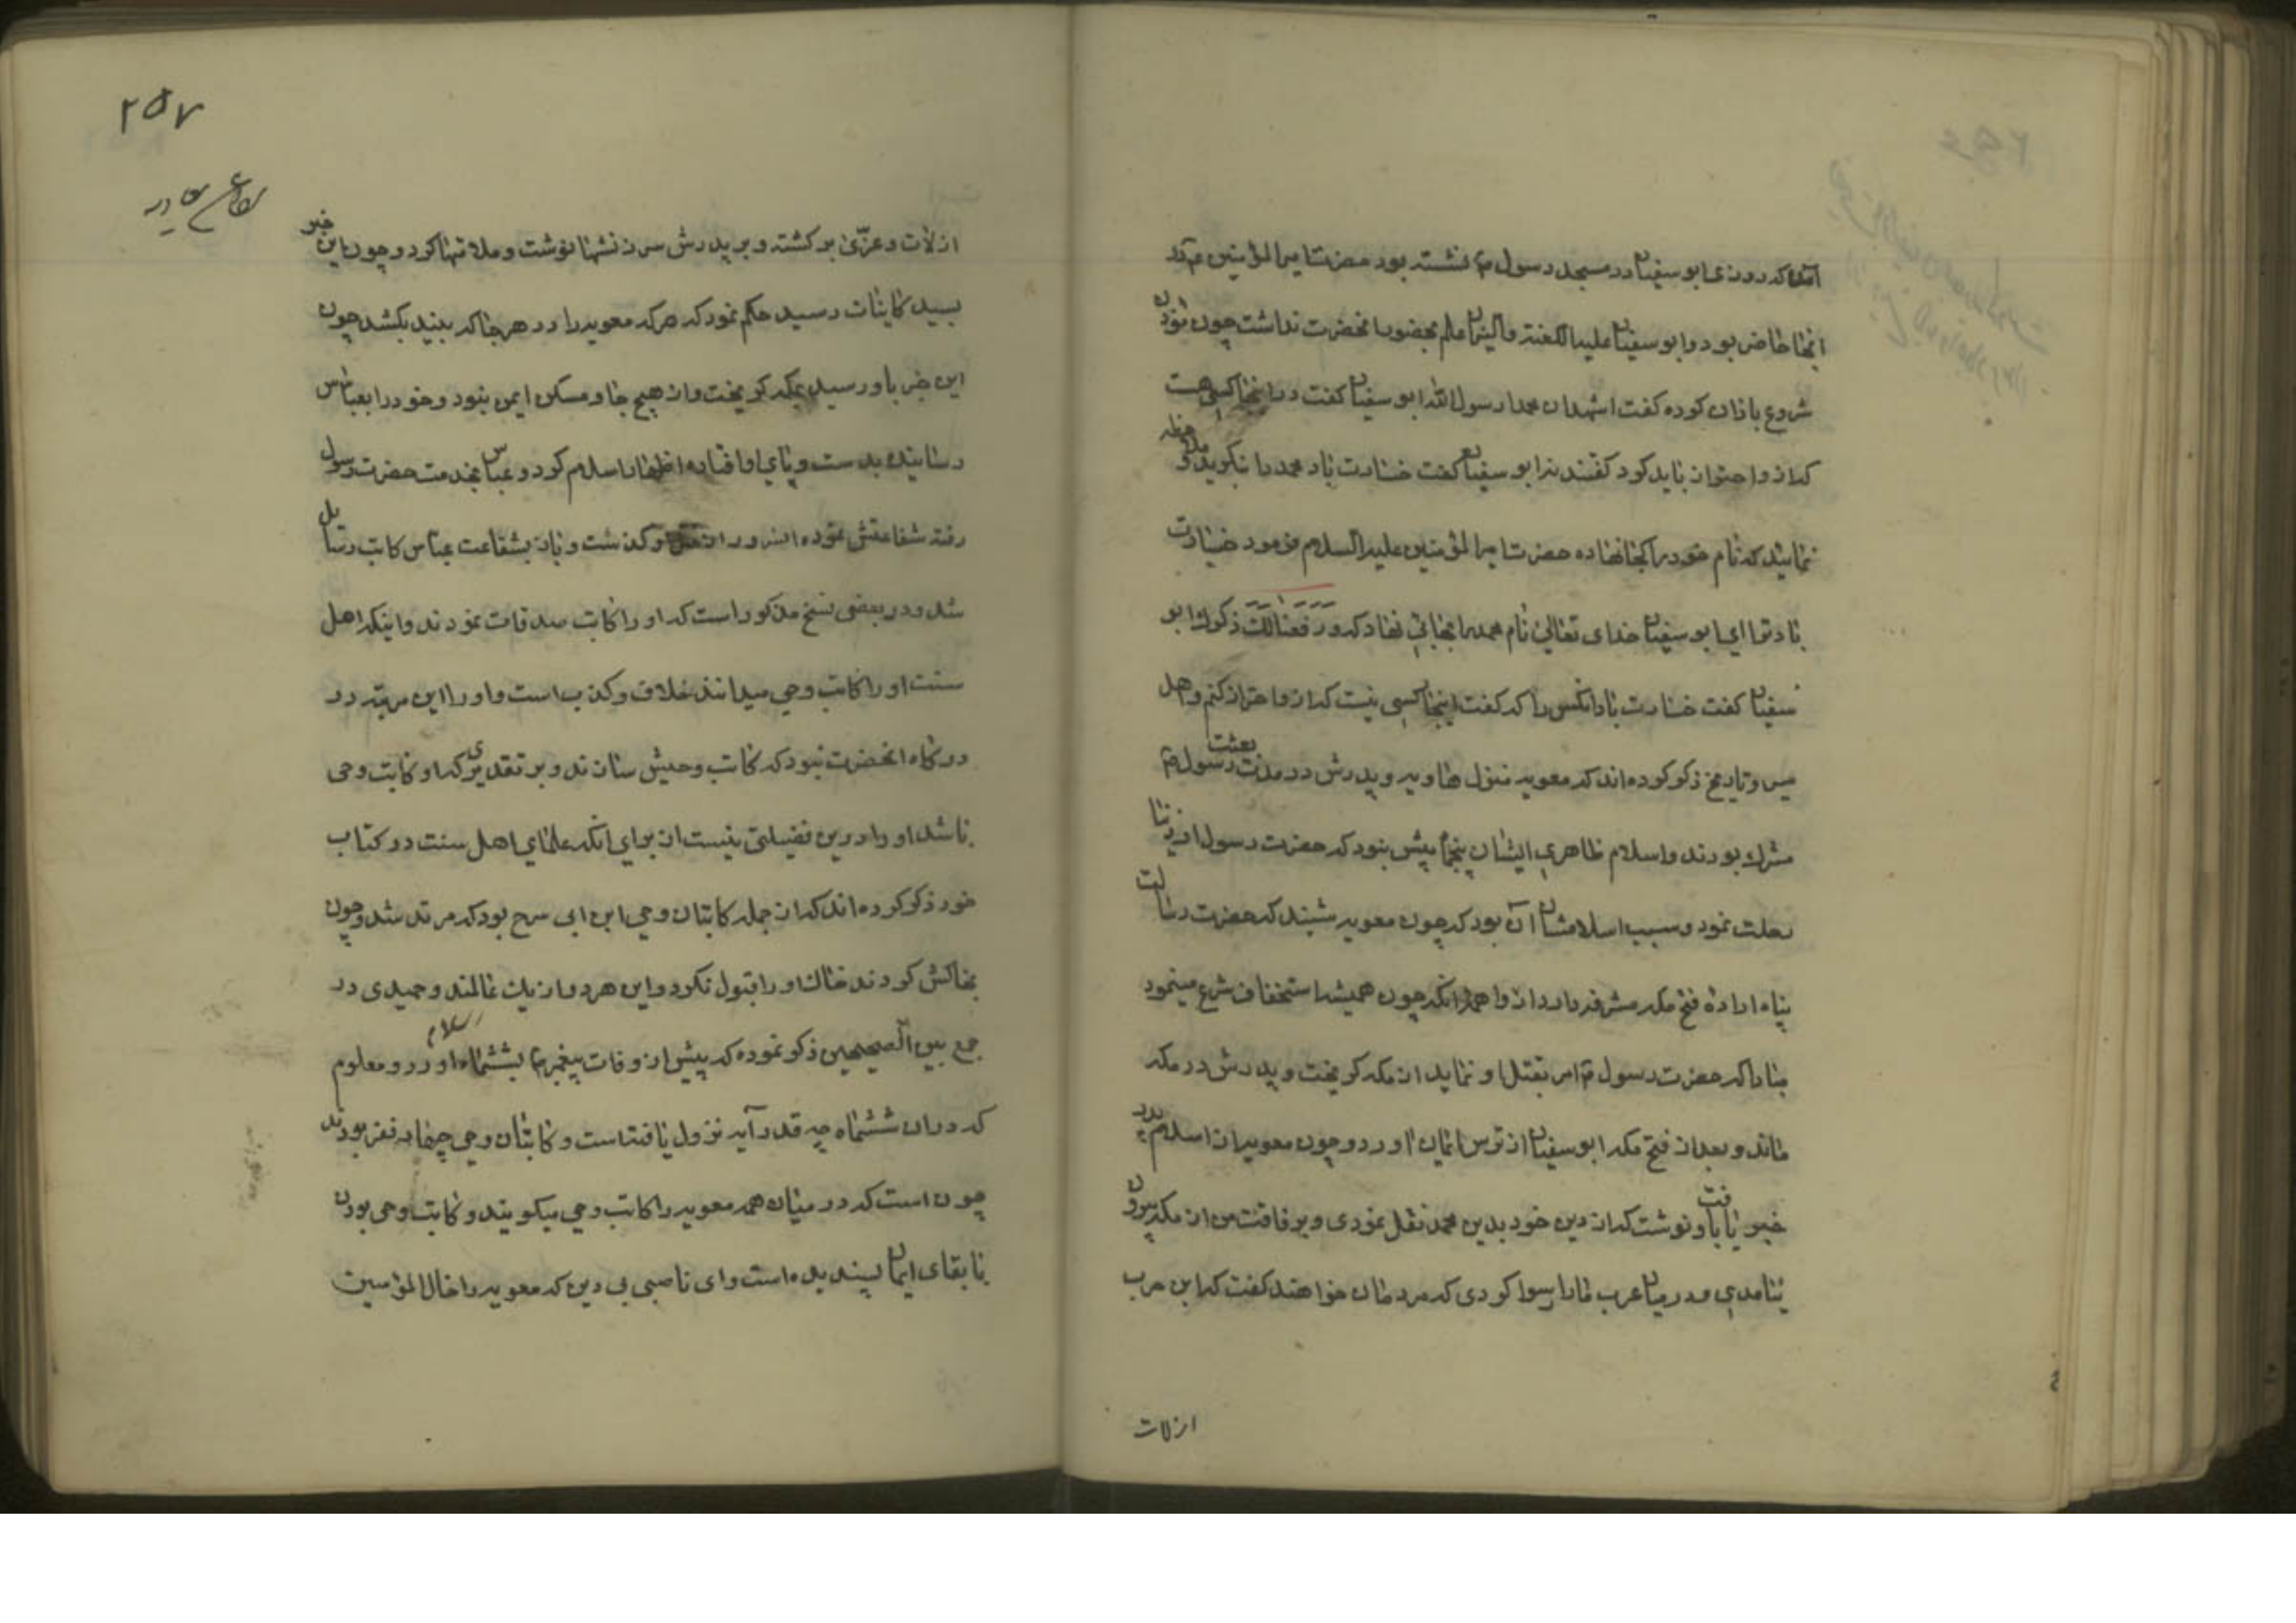 آمده که روزی ابو سفیان در مسجد رسول ص نشسته بود حضرت امیر المؤمنین ع در
انجا حاضر بود و ابو سفیان علیه اللعنه والنیران علم بحضور انحضرت نداشت چون مؤذن
شروع باذان کرده گفت اشهد ان محمدا رسول الله ابو سفیان گفت در اینجا کسی هست
که از و احتراز باید کرد گفتند نه ابو سفیان گفت خسارت باد محمد را بنگرید و ملاحظه
نمائید که نام خود را کجا نهاده حضرت امیر المؤمنین علیه السلام فرمود خسارت
باد ترا ای ابو سفیان خدای تعالی نام محمد را انجا نهاد که و رفعنا لک ذکرک ابو
سفیان گفت خسارت باد انکس را که گفت اینجا کسی نیست که از و احتراز کنم و اهل
سیر و تاریخ ذکر کرده اند که معویه نزیل هاویه و پدرش در مدت بعثت رسول ص
مشرک بودند و اسلام ظاهری ایشان پنجماه پیش نبود که حضرت رسول از دنیا
رحلت نمود و سبب اسلامشان آن بود که چون معویه شنید که حضرت رسالت
پناه اراده فتح مکه مشرفه دارد از واهمه انکه چون همیشه استخفاف شرع مینمود
مبادا که حضرت رسول ص امر بقتل او نماید از مکه گریخت و پدرش در مکه
ماند و بعد از فتح مکه ابو سفیان از ترس ایمان اورد و چون معویه از اسلام پدر
خبر یافت باو نوشت که از دین خود بدین محمد نقل نمودی و برفاقت من از مکه بیرون
نیامدی و در میان عرب مارا رسوا کردی که مردمان خواهند گفت که ابن حرب
از لات
۲۵۷
از لات و عزّی بر گشته و بر پدرش سرزنشها نوشت و ملامتها کرد و چون این خبر
بسید کاینات رسید حکم نمود که هر که معویه را در هر جا که بیند بکشد چون
این خبر باو رسید بمکه گریخت و از هیچ جا و مسکن ایمن نبود و خود را بعباس
رسانیده بدست و پای او افتاده اظهار اسلام کرد و عباس بخدمت حضرت رسول
رفته شفاعتش نموده از قتل او گذشت و باز بشفاعت عباس کاتب رسایل
شد و در بعضی نسخ مذکور است که او را کاتب صدقات نمودند و اینکه اهل
سنت او را کاتب وحی میدانند خلاف و کذب است و او را این مرتبه در
درگاه انحضرت نبود که کاتب وحیش سازند و بر تقدیری که او کاتب وحی
باشد او را درین فضیلتی نیست از برای انکه علمای اهل سنت در کتاب
خود ذکر کرده اند که از جمله کاتبان وحی ابن ابی سرح بود که مرتد شد و چون
بخاکش کردند خاک او را قبول نکرد و این هر دو از یک عالمند و حمیدی در
جمع بین الصحیحین ذکر نموده که پیش از وفات پیغمبر ص بششماه اسلام اورد و معلوم
که در ان ششماه چه قدر آیه نزول یافته است و کاتبان وحی چهارده نفر بودند
چون است که در میان همه معویه را کاتب وحی میگویند و کاتب وحی بودن
با بقای ایمان پسندیده است و ای ناصبی بی دین که معویه را خال المؤمنین